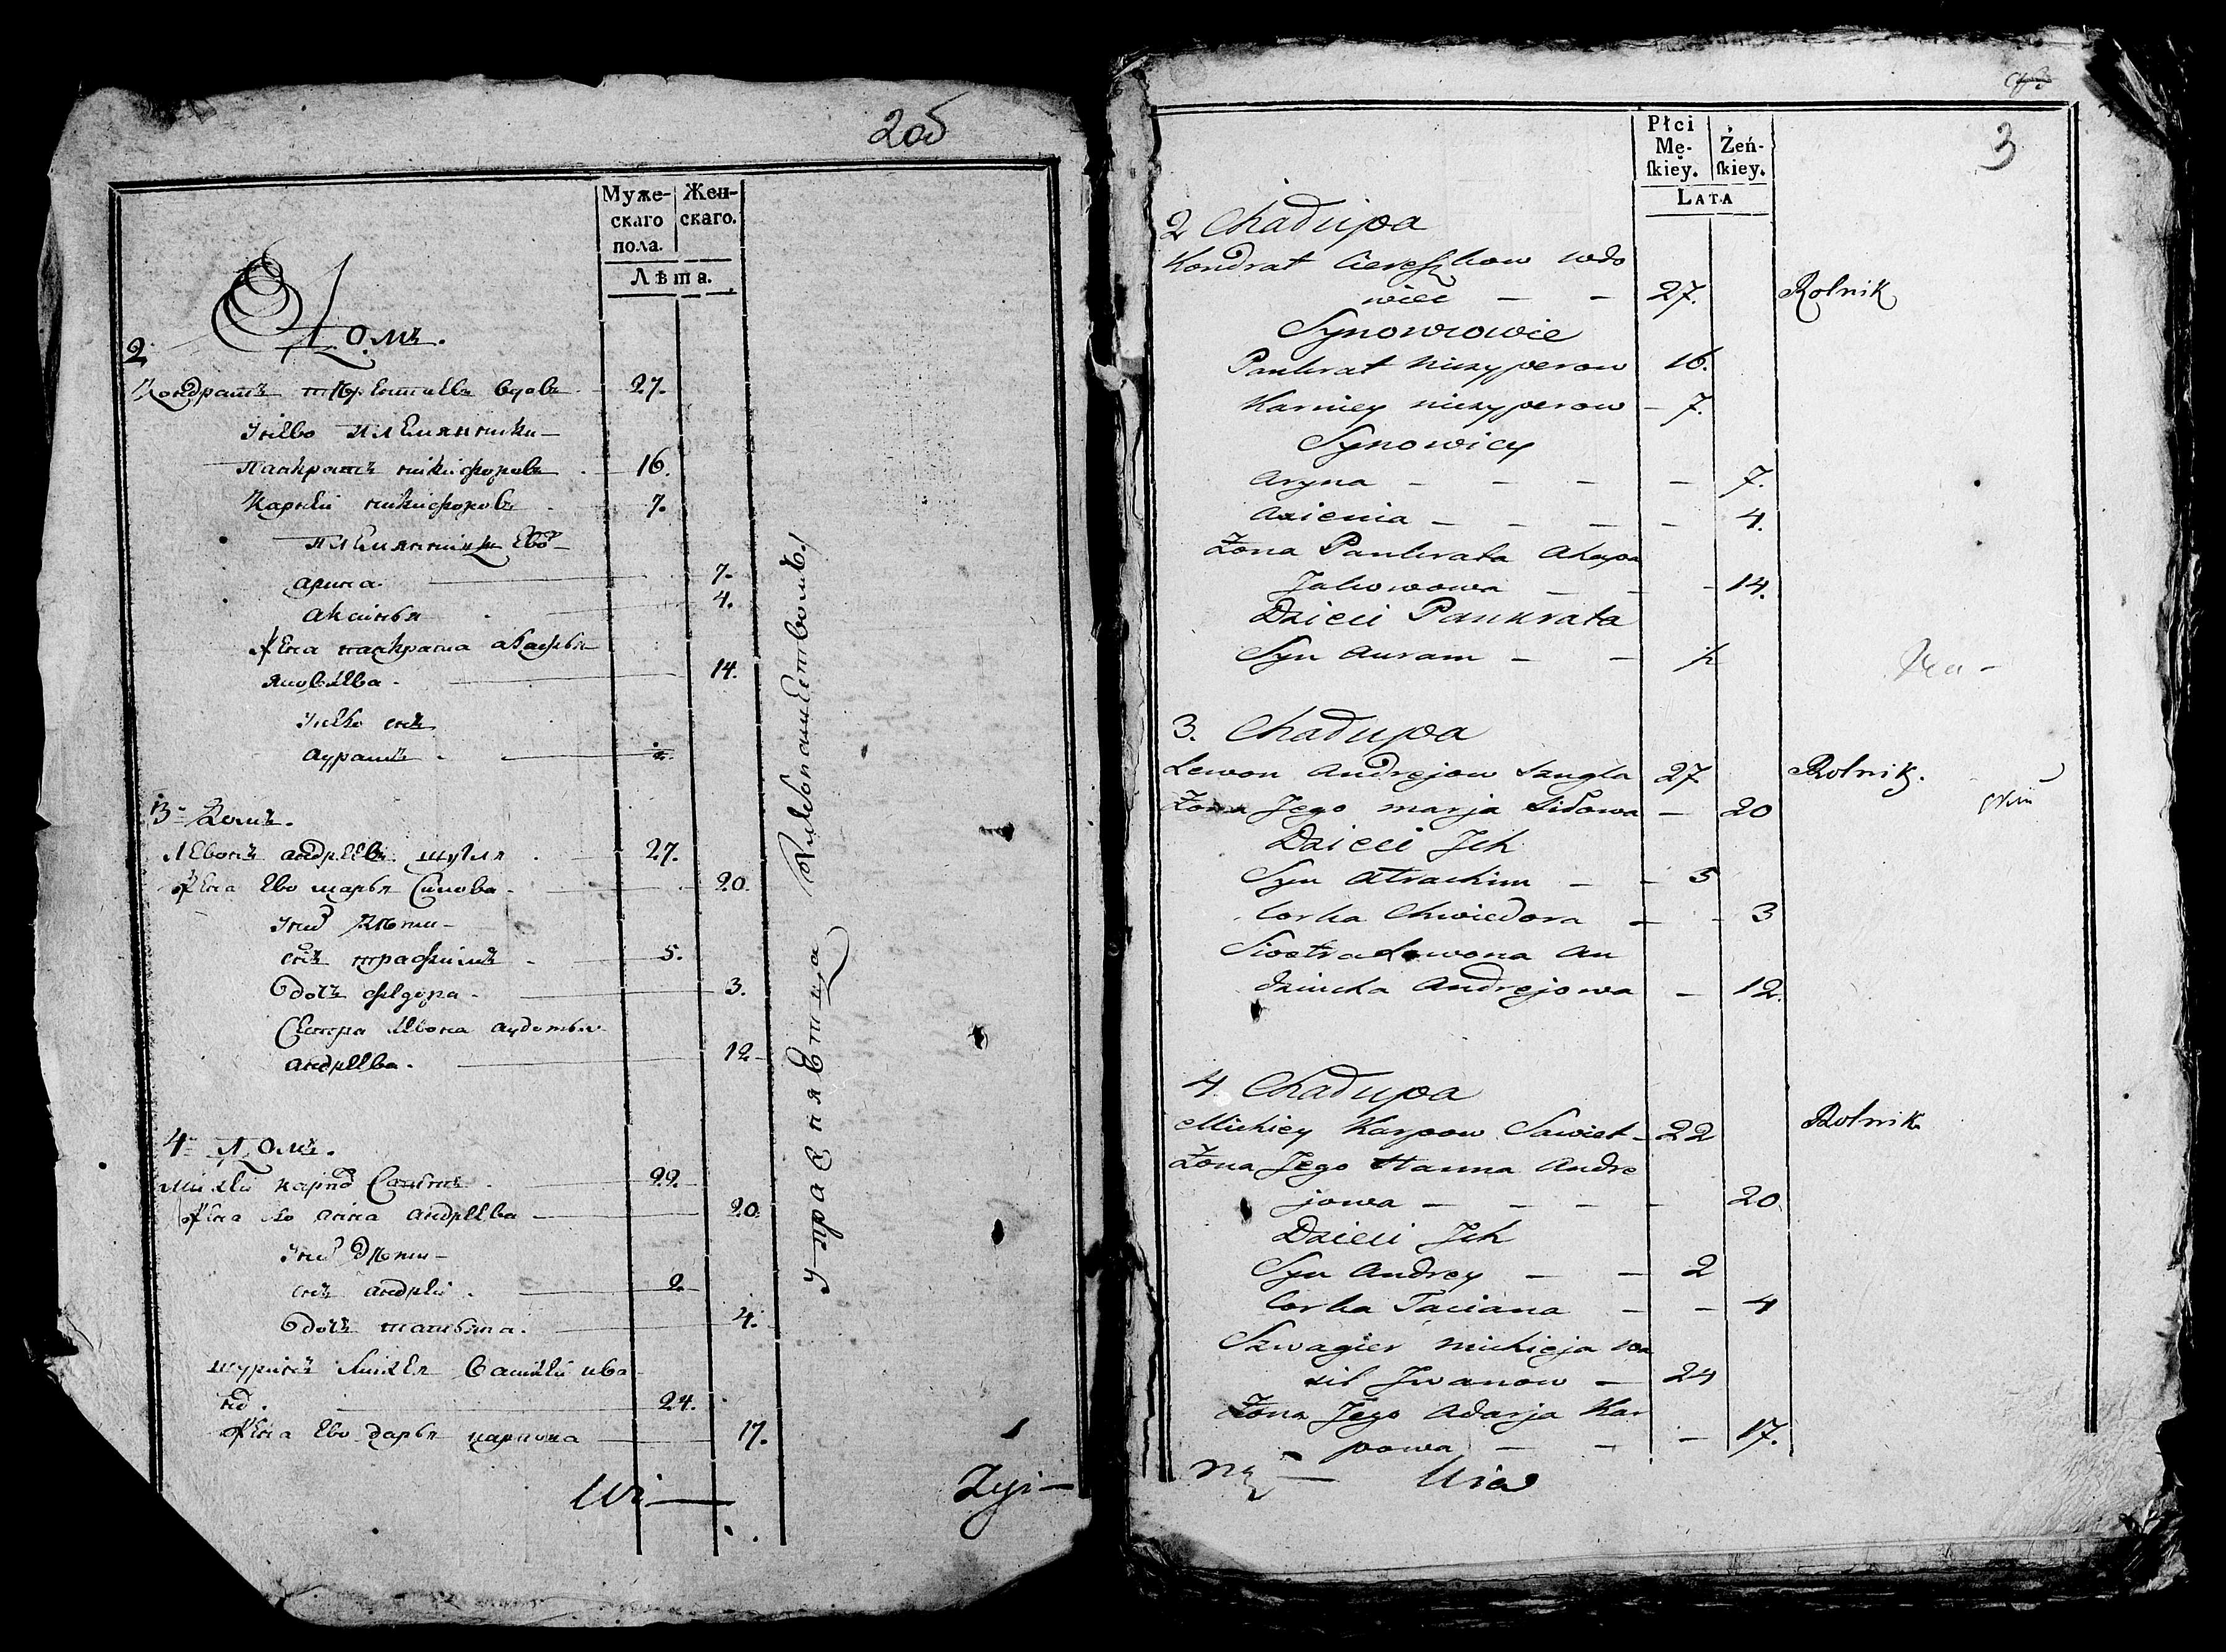 2об
Муже-
скаго
пола.
Жен-
скаго.
Лѣта.
2 Домъ.
Кондратъ терентиевъ вдовъ 27.
Унево племянники
панкратъ никифоровъ 16.
Карнѣй никифоровъ 7.
племянницы Ево
арина 7.
аксинья 4.
Жена панкрата агафья
яковлева 14.
Унево снъ
аурамъ
3 Домъ.
Левонъ андрѣевъ 27.
Жена Ево марья 20.
Унихъ дѣти
снъ трафимъ 5.
дочь федора 3.
Сестра левона аудотья
андрѣева 12
4 Домъ.
михѣй карпо 22.
Жена Ево анна андрѣева 20
Унихъ дѣти
снъ андрѣй 2.
дочь татьяна 4.
шуринъ михея василѣй ива
но 24.
Жена Ево дарья карпова 17.
Упражняютца хлебопашествомъ
3
Płci
Mę-
skiey.
Żeń-
skiey.
LATA
2 Chadupa
Kondrat Cereszkow wdo
wiec 27. Rolnik
Synowcowie
Pankrat niczyperow 16.
Karniey niczyperow 7.
Synowicy
Aryna 7.
Axienia 4.
Żona Pankrata Ahapa
Jakowowa 14.
Dzieci Pankrata
Syn Auram ½
3. Chadupa
Lewon Andrejow 27 Rolnik.
Żona Jego marja Sidowa 20
Dzieci Jch
Syn Atrachim 5
Corka Chwiedora 3
Siostra Lewona Au
dziucka Andrejowa 12.
4 Chadupa
Michiey Karpow Sawiet 22 Rolnik
Żona Jego Hanna Andre
jowa 20.
Dzieci Jch
Syn Andrey 2
Corka Taciana 4
Szwagier michieja wa
sil Jwanow 24
Żona Jego Adarja Kar
powa 17.